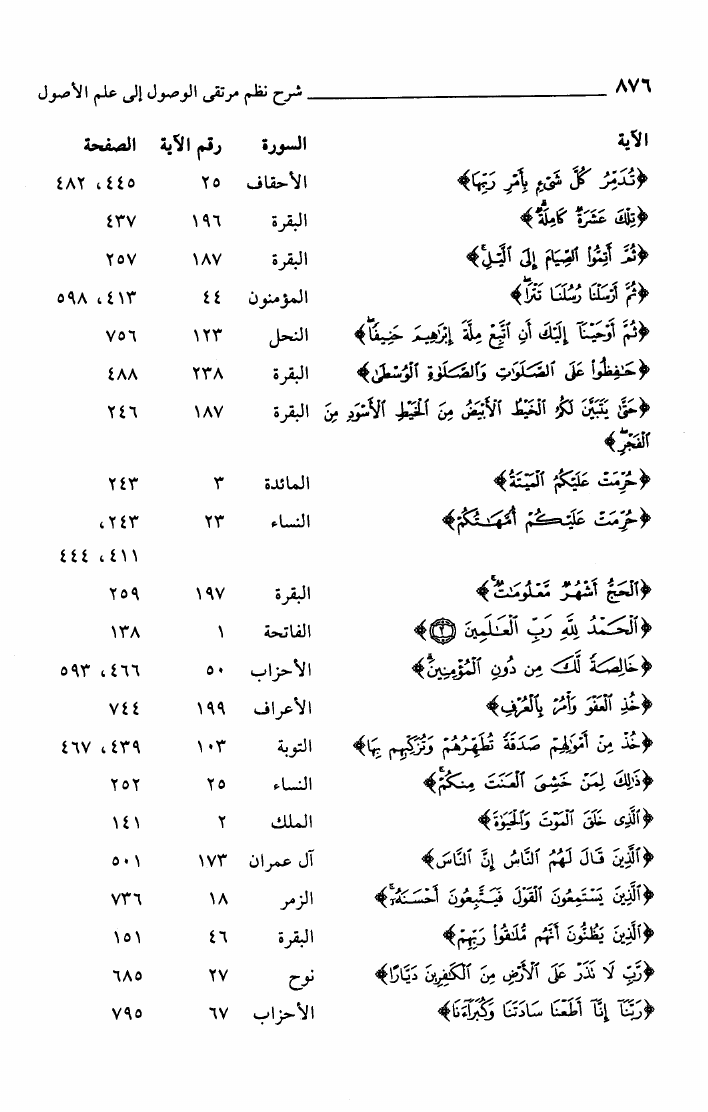 ٨٧٦ شرح نظم مرتقى الوصول إلى علم الأصول
الآية السورة رقم الآية الصفحة
﴿تُدَمِّرُ كُلَّ شَىْءٍ بِأَمْرِ رَبِّهَا﴾ الأحقاف ٢٥ ٤٤٥، ٤٨٢
﴿تِلْكَ عَشَرَةٌ كَامِلَةٌ﴾ البقرة ١٩٦ ٤٣٧
﴿ثُمَّ أَتِمُّوا۟ ٱلصِّيَامَ إِلَى ٱلَّيْلِ﴾ البقرة ١٨٧ ٢٥٧
﴿ثُمَّ أَرْسَلْنَا رُسُلَنَا تَتْرَا﴾ المؤمنون ٤٤ ٤١٣، ٥٩٨
﴿ثُمَّ أَوْحَيْنَآ إِلَيْكَ أَنِ ٱتَّبِعْ مِلَّةَ إِبْرَٰهِيمَ حَنِيفًا﴾ النحل ١٢٣ ٧٥٦
﴿حَٰفِظُوا۟ عَلَى ٱلصَّلَوَٰتِ وَٱلصَّلَوٰةِ ٱلْوُسْطَىٰ﴾ البقرة ٢٣٨ ٤٨٨
﴿حَتَّىٰ يَتَبَيَّنَ لَكُمُ ٱلْخَيْطُ ٱلْأَبْيَضُ مِنَ ٱلْخَيْطِ ٱلْأَسْوَدِ مِنَ البقرة ١٨٧ ٢٤٦
ٱلْفَجْرِ﴾
﴿حُرِّمَتْ عَلَيْكُمُ ٱلْمَيْتَةُ﴾ المائدة ٣ ٢٤٣
﴿حُرِّمَتْ عَلَيْكُمْ أُمَّهَٰتُكُمْ﴾ النساء ٢٣ ٢٤٣،
٤١١، ٤٤٤
﴿ٱلْحَجُّ أَشْهُرٌ مَّعْلُومَٰتٌ﴾ البقرة ١٩٧ ٢٥٩
﴿ٱلْحَمْدُ لِلَّهِ رَبِّ ٱلْعَٰلَمِينَ ٢﴾ الفاتحة ١ ١٣٨
﴿خَالِصَةً لَّكَ مِن دُونِ ٱلْمُؤْمِنِينَ﴾ الأحزاب ٥٠ ٤٦٦، ٥٩٣
﴿خُذِ ٱلْعَفْوَ وَأْمُرْ بِٱلْعُرْفِ﴾ الأعراف ١٩٩ ٧٤٤
﴿خُذْ مِنْ أَمْوَٰلِهِمْ صَدَقَةً تُطَهِّرُهُمْ وَتُزَكِّيهِم بِهَا﴾ التوبة ١٠٣ ٤٣٩، ٤٦٧
﴿ذَٰلِكَ لِمَنْ خَشِىَ ٱلْعَنَتَ مِنكُمْ﴾ النساء ٢٥ ٢٥٢
﴿ٱلَّذِى خَلَقَ ٱلْمَوْتَ وَٱلْحَيَوٰةَ﴾ الملك ٢ ١٤١
﴿ٱلَّذِينَ قَالَ لَهُمُ ٱلنَّاسُ إِنَّ ٱلنَّاسَ﴾ آل عمران ١٧٣ ٥٠١
﴿ٱلَّذِينَ يَسْتَمِعُونَ ٱلْقَوْلَ فَيَتَّبِعُونَ أَحْسَنَهُۥٓ﴾ الزمر ١٨ ٧٣٦
﴿ٱلَّذِينَ يَظُنُّونَ أَنَّهُم مُّلَٰقُوا۟ رَبِّهِمْ﴾ البقرة ٤٦ ١٥١
﴿رَّبِّ لَا تَذَرْ عَلَى ٱلْأَرْضِ مِنَ ٱلْكَٰفِرِينَ دَيَّارًا﴾ نوح ٢٧ ٦٨٥
﴿رَبَّنَآ إِنَّآ أَطَعْنَا سَادَتَنَا وَكُبَرَآءَنَا﴾ الأحزاب ٦٧ ٧٩٥